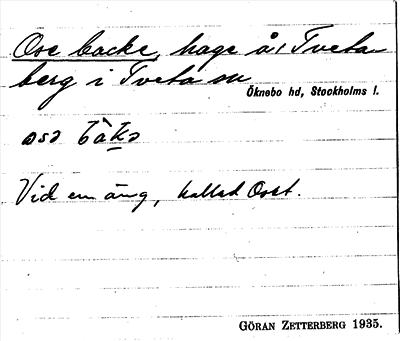 Ose backe, hage å Tveta
berg i Tveta sn
Öknebo hd, Stockholms l.
Vid en äng, kallad Oset.
GÖRAN ZETTERBERG 1935.